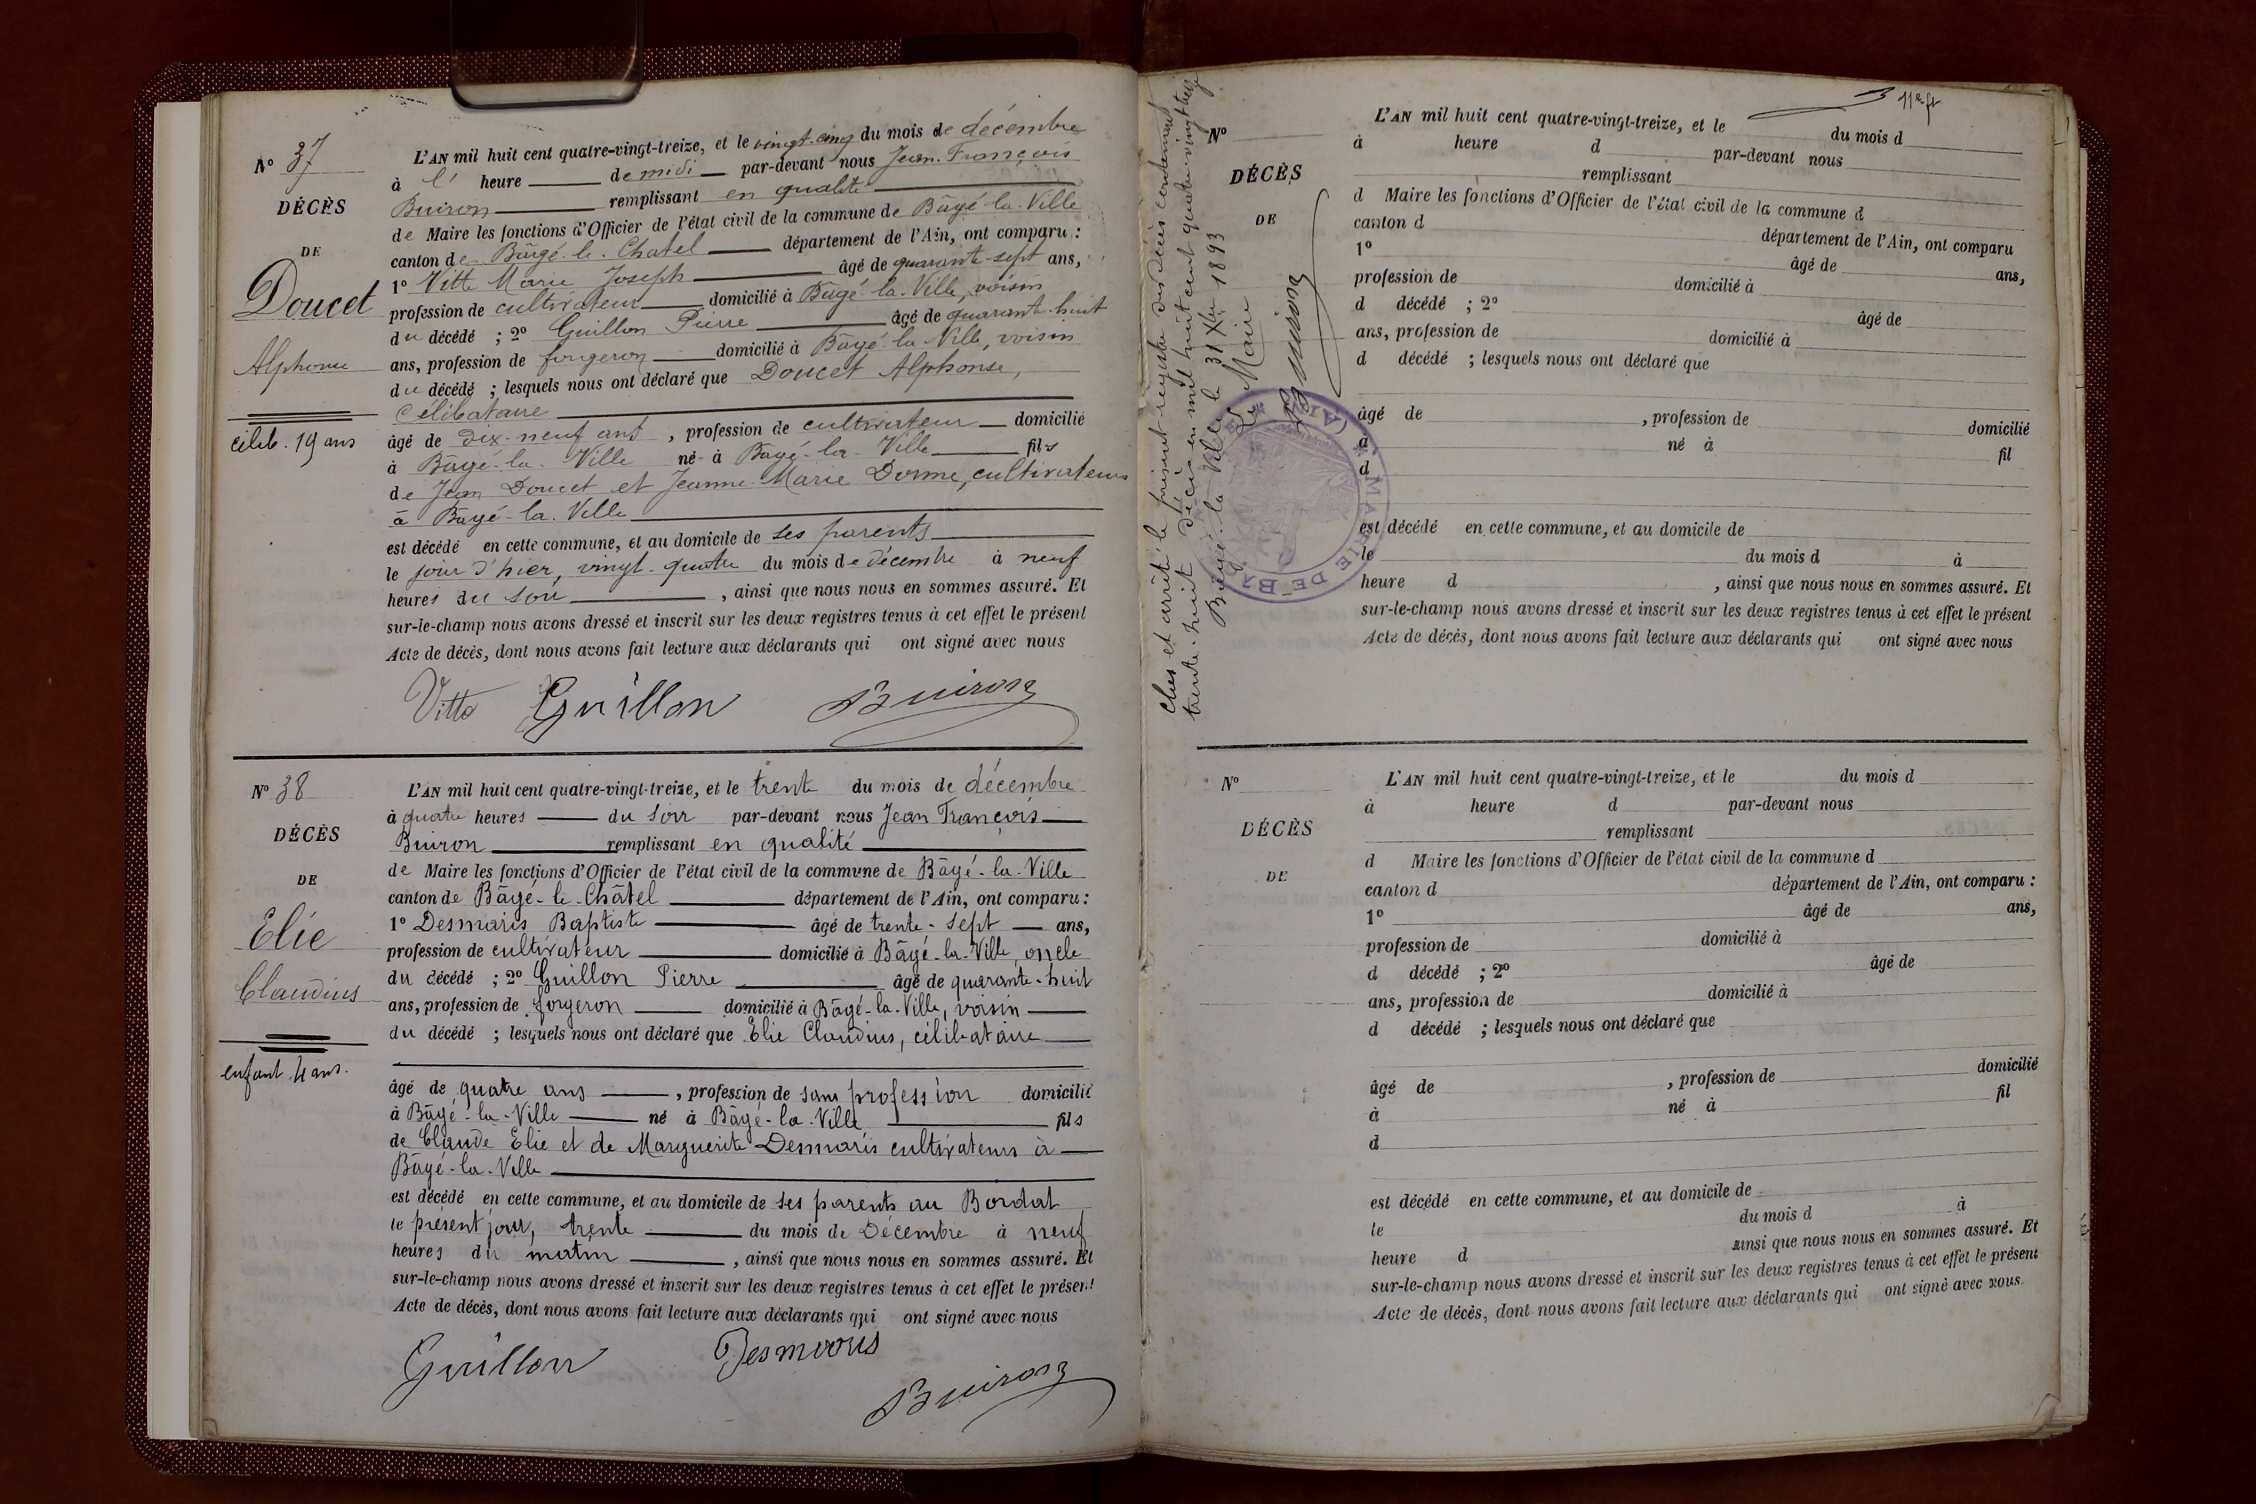 N° 37
DÉCÈS
DE
Doucet
Alphonse
célib. 19 ans
L'AN mil huit cent quatre-vingt-treize, et le vingt-cinq du mois de décembre
à l' heure de midi par-devant nous Jean-François
Buiron remplissant en qualité
de Maire les fonctions d'Officier de l'état civil de la commune de Bâgé-la-Ville
canton de Bâgé-le-Chatel département de l'Ain, ont comparu :
1° Vitte Marie Joseph âgé de quarante-sept ans,
profession de cultivateur domicilié à Bâgé-la-Ville, voisin
du décédé ; 2° Guillon Pierre âgé de quarante-huit
ans, profession de forgeron domicilié à Bâgé-la-Ville, voisin
du décédé ; lesquels nous ont déclaré que Doucet Alphonse,
célibataire
âgé de dix-neuf ans, profession de cultivateur domicilié
à Bâgé-la-Ville né à Bâgé-la-Ville fils
de Jean Doucet et Jeanne-Marie Dorme, cultivateurs
à Bâgé-la-Ville
est décédé en cette commune, et au domicile de ses parents
le jour d'hier, vingt-quatre du mois de décembre à neuf
heures du soir, ainsi que nous nous en sommes assuré. Et
sur-le-champ nous avons dressé et inscrit sur les deux registres tenus à cet effet le présent
Acte de décès, dont nous avons fait lecture aux déclarants qui ont signé avec nous
Vitte Guillon Buiron
N° 38
DÉCÈS
DE
Elie
Claudius
enfant 4 ans.
L'AN mil huit cent quatre-vingt-treize, et le trente du mois de décembre
à quatre heures du soir par-devant nous Jean François
Buiron remplissant en qualité
de Maire les fonctions d'Officier de l'état civil de la commune de Bâgé-la-Ville
canton de Bâgé-le-Châtel département de l'Ain, ont comparu :
1° Desmaris Baptiste âgé de trente-sept ans,
profession de cultivateur domicilié à Bâgé-la-Ville, oncle
du décédé ; 2° Guillon Pierre âgé de quarante-huit
ans, profession de forgeron domicilié à Bâgé-la-Ville, voisin
du décédé ; lesquels nous ont déclaré que Elie Claudius, célibataire
âgé de quatre ans, profession de sans profession domicilié
à Bâgé-la-Ville né à Bâgé-la-Ville fils
de Claude Elie et de Marguerite Desmaris cultivateurs à
Bâgé-la-Ville
est décédé en cette commune, et au domicile de ses parents au Bordat
le présent jour, trente du mois de Décembre à neuf
heures du matin, ainsi que nous nous en sommes assuré. Et
sur-le-champ nous avons dressé et inscrit sur les deux registres tenus à cet effet le présent
Acte de décès, dont nous avons fait lecture aux déclarants qui ont signé avec nous
Guillon Desmaris
Buiron
Clos et arrêté le présent registre des décès contenant
trente-huit décès en mil huit cent quatre-vingt treize
Bâgé-la-Ville le 31 Xbre 1893
Le Maire
Buiron
MAIRIE DE BÂGÉ (AIN)
11e ft
N°
DÉCÈS
DE
L'AN mil huit cent quatre-vingt-treize, et le du mois d
à heure d par-devant nous
remplissant
d Maire les fonctions d'Officier de l'état civil de la commune d
canton d département de l'Ain, ont comparu
1° âgé de ans,
profession de domicilié à
d décédé ; 2° âgé de
ans, profession de domicilié à
d décédé ; lesquels nous ont déclaré que
âgé de , profession de domicilié
à né à fil
d
est décédé en cette commune, et au domicile de
le du mois d à
heure d , ainsi que nous nous en sommes assuré. Et
sur-le-champ nous avons dressé et inscrit sur les deux registres tenus à cet effet le présent
Acte de décès, dont nous avons fait lecture aux déclarants qui ont signé avec nous
N°
DÉCÈS
DE
L'AN mil huit cent quatre-vingt-treize, et le du mois d
à heure d par-devant nous
remplissant
d Maire les fonctions d'Officier de l'état civil de la commune d
canton d département de l'Ain, ont comparu :
1° âgé de ans,
profession de domicilié à
d décédé ; 2° âgé de
ans, profession de domicilié à
d décédé ; lesquels nous ont déclaré que
âgé de , profession de domicilié
à né à fil
d
est décédé en cette commune, et au domicile de
le du mois d à
heure d ainsi que nous nous en sommes assuré. Et
sur-le-champ nous avons dressé et inscrit sur les deux registres tenus à cet effet le présent
Acte de décès, dont nous avons fait lecture aux déclarants qui ont signé avec nous.